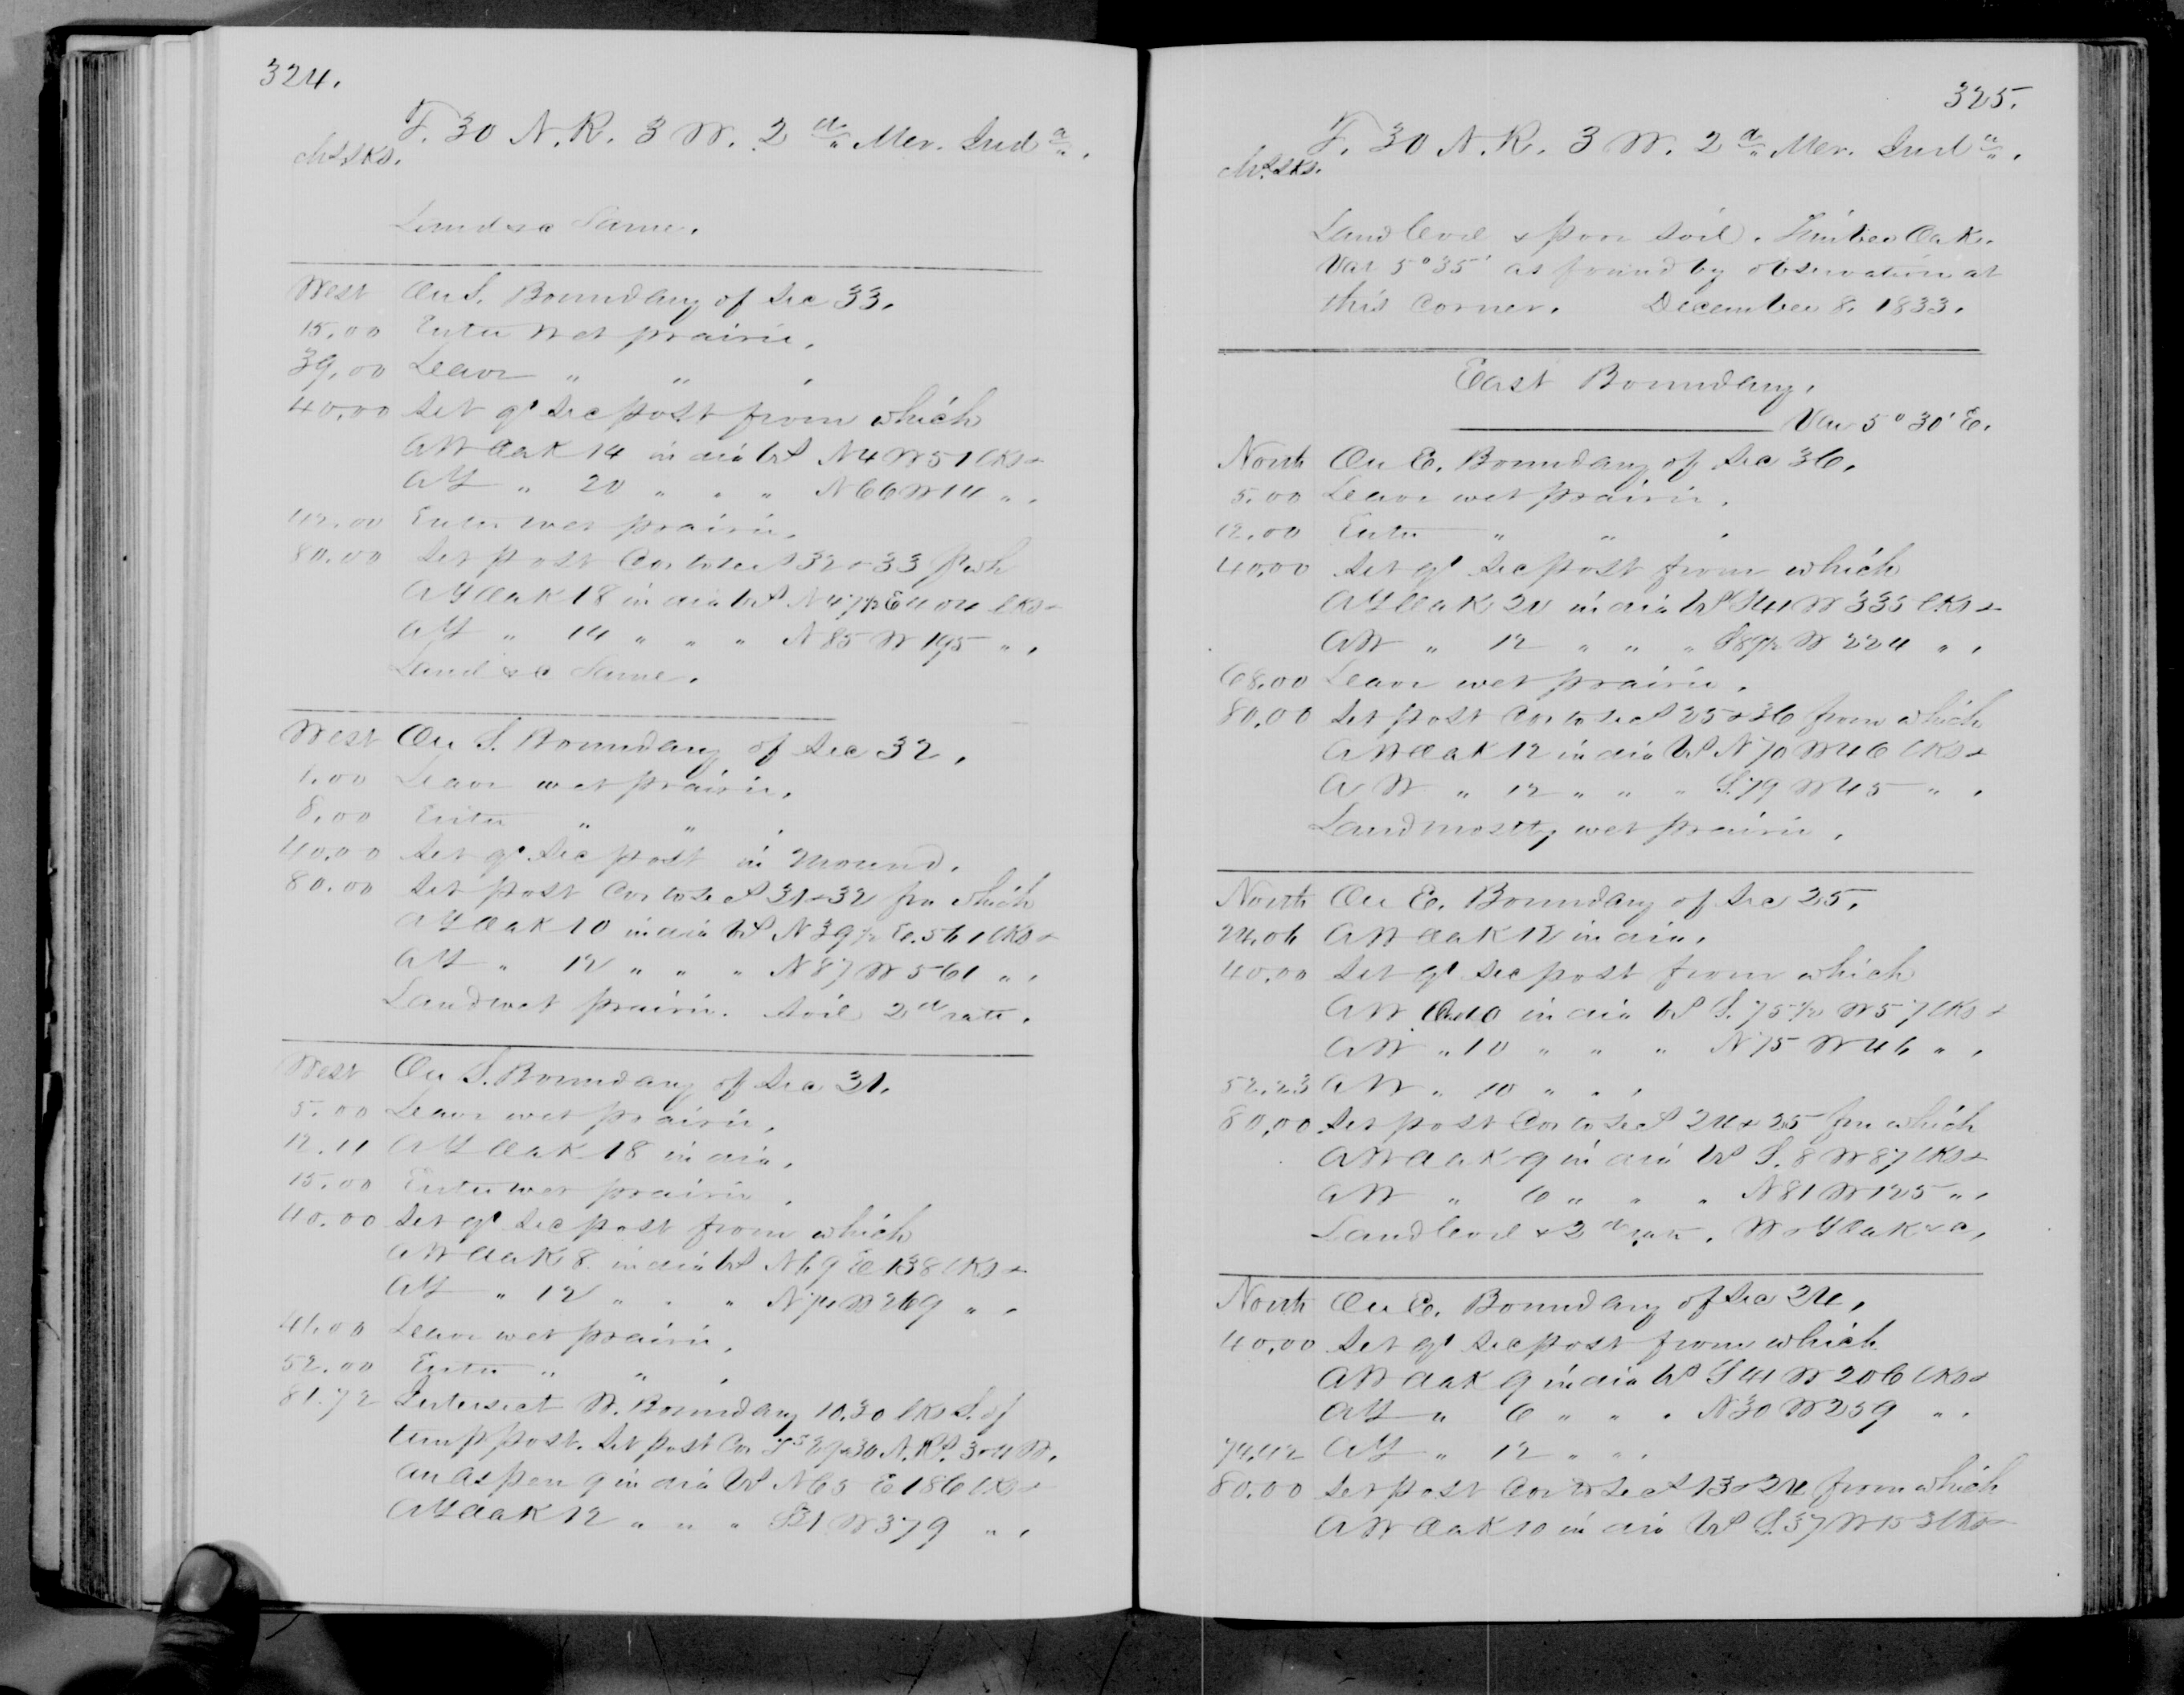 324.
T. 30 N. R. 3 W. 2d Mer. Inda.
Chs.lks.
Land &c Same.
West On S. Boundary of Sec 33.
15.00 Enter wet prairie.
39.00 Leave " " .
40.00 Set qr Sec post from which
A W Oak 14 in dia brs N 4 W 51 lks &
A Y " 20 " " " N 66 W 14 " .
42.00 Enter wet prairie.
80.00 Set post Cor to Secs 32 & 33 fr wh
A Y Oak 18 in dia brs N 47½ E 404 lks &
A Y " 14 " " " N 85 W 195 " .
Land &c Same.
West On S. Boundary of Sec 32.
1.00 Leave wet prairie.
8.00 Enter " " .
40.00 Set qr Sec post in Mound.
80.00 Set post Cor to Secs 31 & 32 fm which
A Y Oak 10 in dia brs N 39½ E. 561 lks &
A Y " 12 " " " N 87 W 561 " .
Land wet prairie. Soil 2d rate.
West On S. Boundary of Sec 31.
5.00 Leave wet prairie.
12.11 A Y Oak 18 in dia.
15.00 Enter wet prairie.
40.00 Set qr Sec post from which
A W Oak 8 in dia brs N 69 E 138 lks &
A Y " 12 " " " N 74 W 269 " .
41.00 Leave wet prairie.
52.00 Enter " " .
81.72 Intersect W. Boundary 10.30 lks S. of
temp post. Set post Cor Ts 29 & 30 N. Rs. 3 & 4 W.
An Aspen 9 in dia brs N 65 E 186 lks &
A Y Oak 12 " " " S 31 W 379 " .
325.
T. 30 N. R. 3 W. 2d Mer. Inda.
Chs.lks.
Land level & poor soil. Timber Oak.
Var 5° 35' as found by observation at
this Corner. December 8. 1833.
East Boundary.
Var 5° 30' E.
North On E. Boundary of Sec 36.
5.00 Leave wet prairie.
12.00 Enter " " .
40.00 Set qr Sec post from which
A Y Oak 20 in dia brs S 41 W 335 lks &
A W " 12 " " " S 89½ W 224 " .
68.00 Leave wet prairie.
80.00 Set post Cor to Secs 25 & 36 from which
A W Oak 12 in dia brs N 70 W 46 lks &
A W " 12 " " " S. 79 W 45 " .
Land mostly wet prairie.
North On E. Boundary of Sec 25.
24.06 A W Oak 12 in dia.
40.00 Set qr Sec post from which
A W 10 in dia brs S. 75½ W 57 lks &
A W " 10 " " " N 75 W 46 " .
52.23 A W " 10 " " .
80.00 Set post Cor to Secs 24 & 25 fm which
A W Oak 9 in dia brs S. 8 W 87 lks &
A W " 6 " " " N 81 W 125 " .
Land level & 2d rate. W & Y Oak &c.
North On E. Boundary of Sec 24.
40.00 Set qr Sec post from which
A W Oak 9 in dia brs S 41 W 206 lks &
A Y " 6 " " " N 30 W 259 " .
74.42 A Y " 12 " " .
80.00 Set post Cor to Secs 13 & 24 from which
A W Oak 10 in dia brs S. 37 W 153 lks &